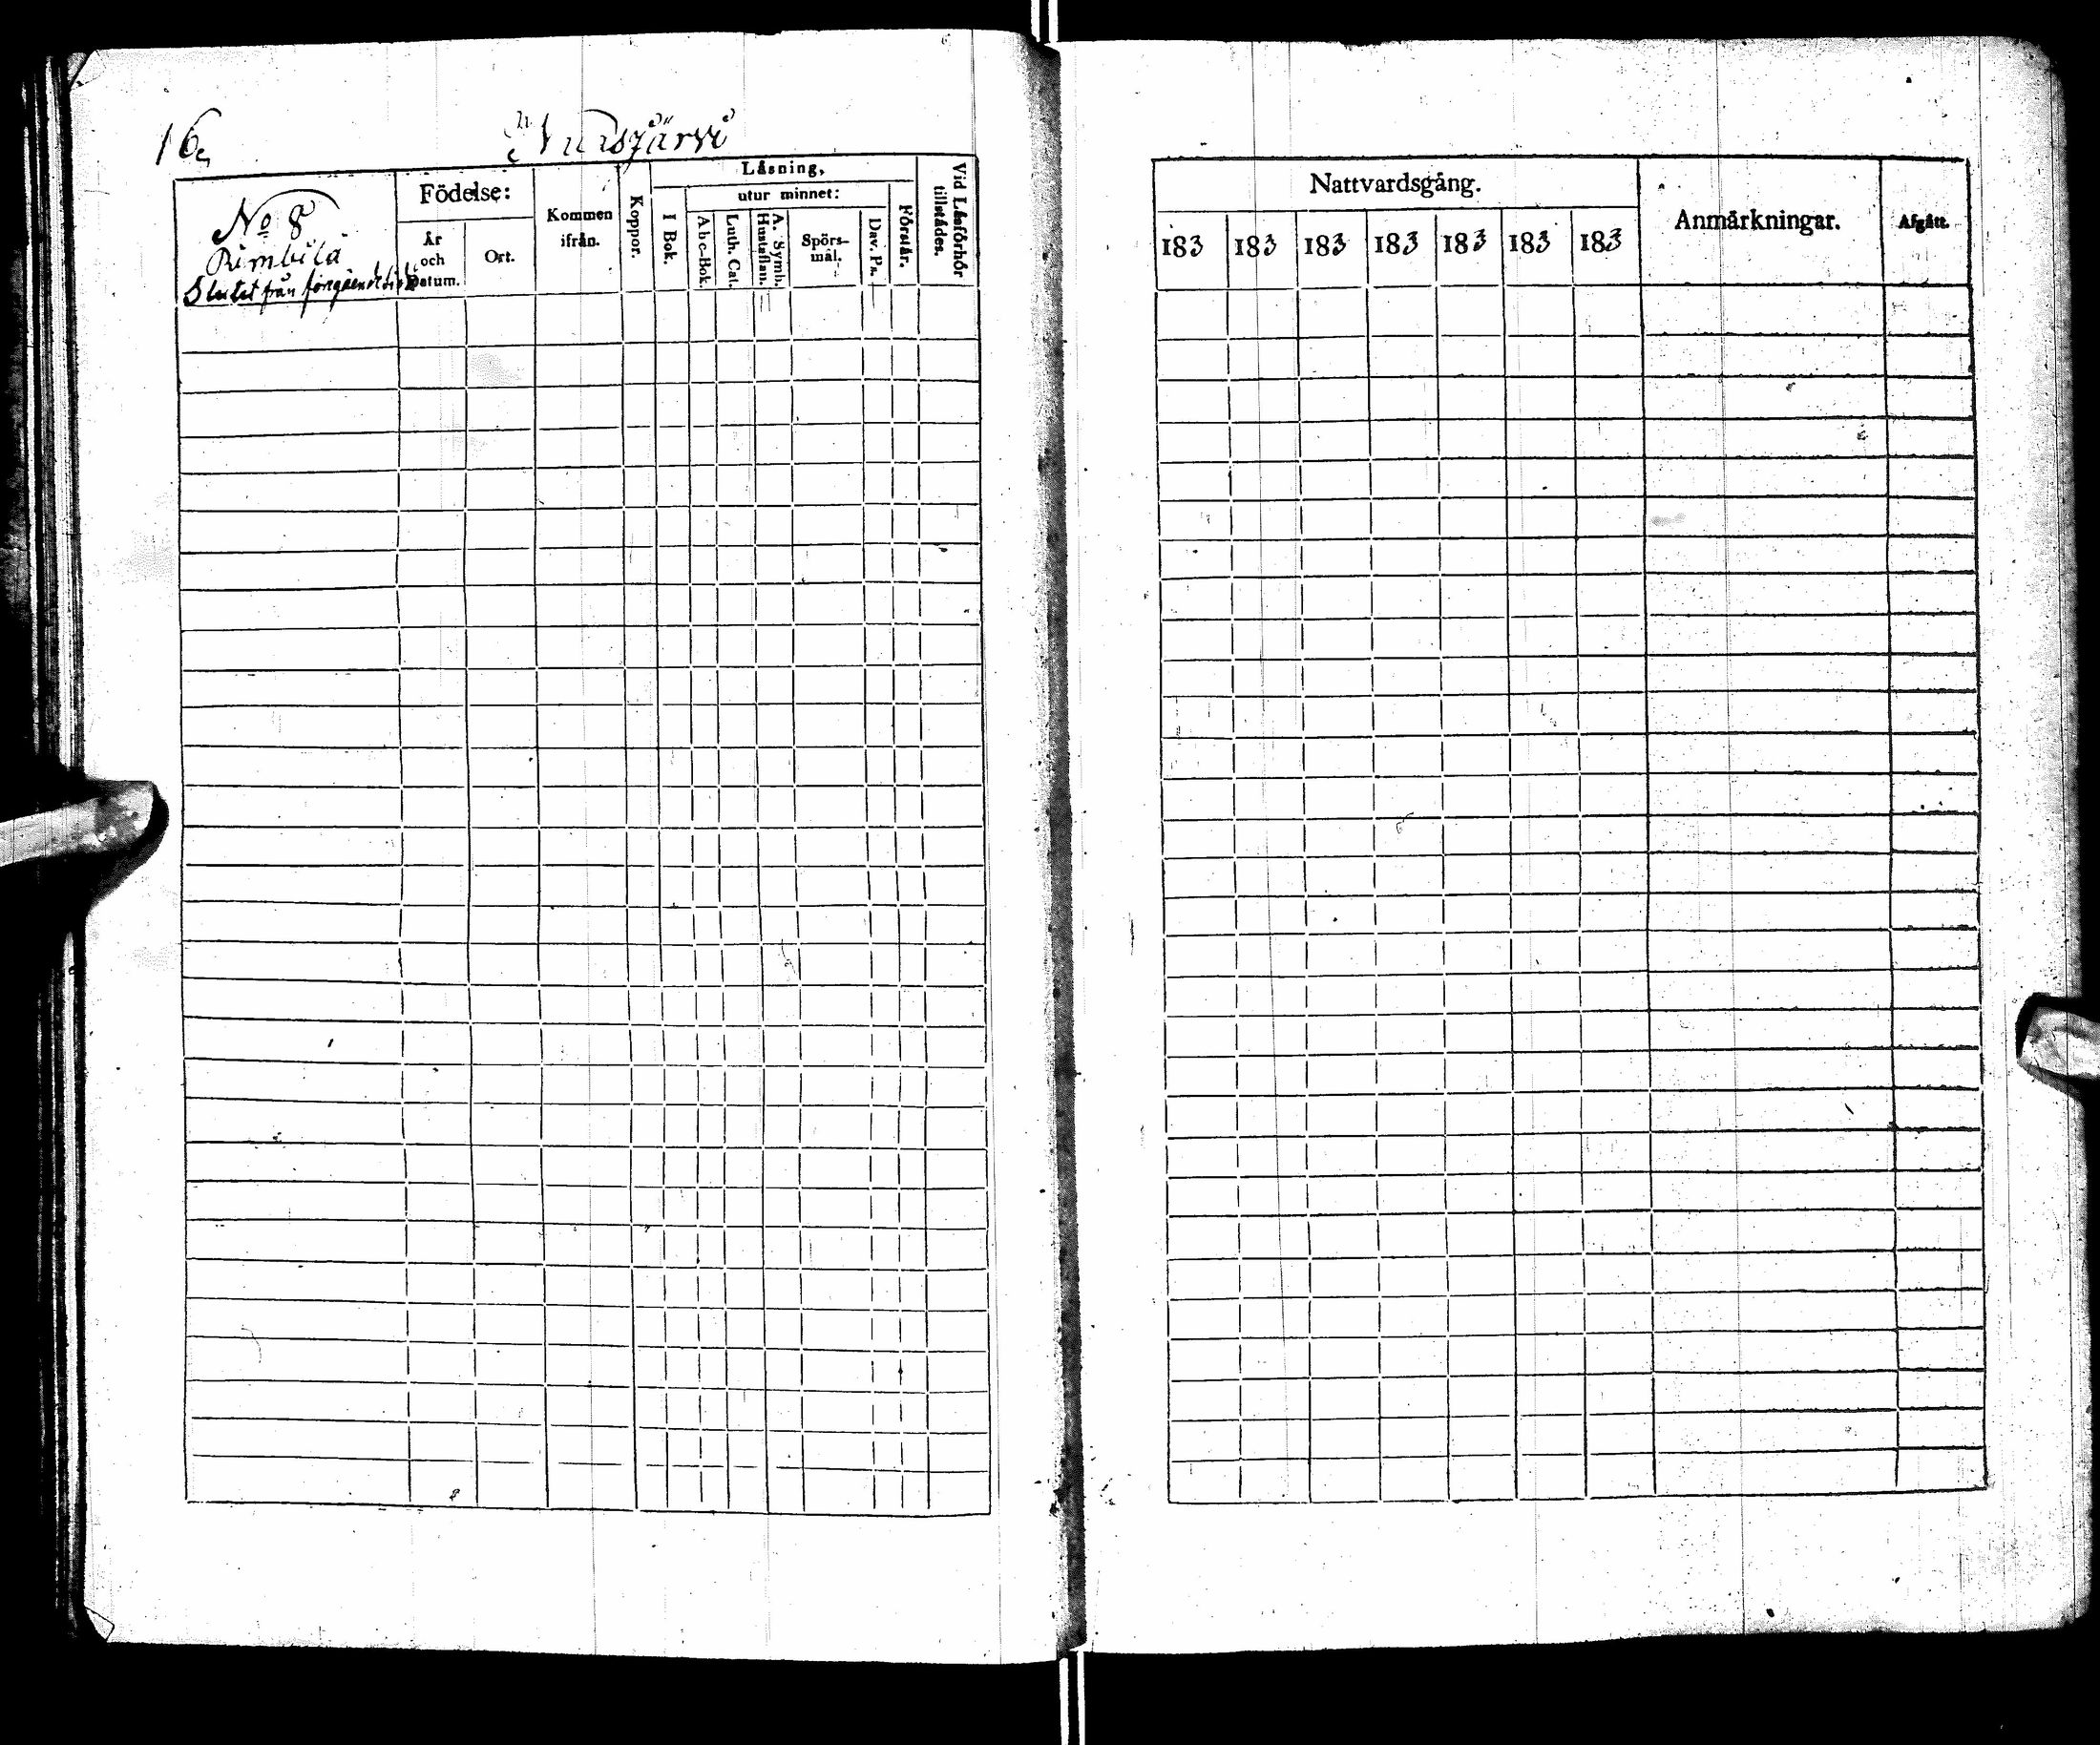 16
Nuisjärvi
No 8
Rimbilä
Slutet från föregående sida
Födelse:
År
och
Datum.
Ort.
Kommen
ifrån.
Koppor.
Låsning,
I Bok.
utur minnet:
Abc-Bok.
Luth. Cat.
A. Symb.
Hustaflan.
Spörs-
mål.
Dav. Ps.
Förstår.
Vid Låsförhör
tillstådes.
Nattvardsgång.
183 183 183 183 183 183 183
Anmårkningar.
Afgått.